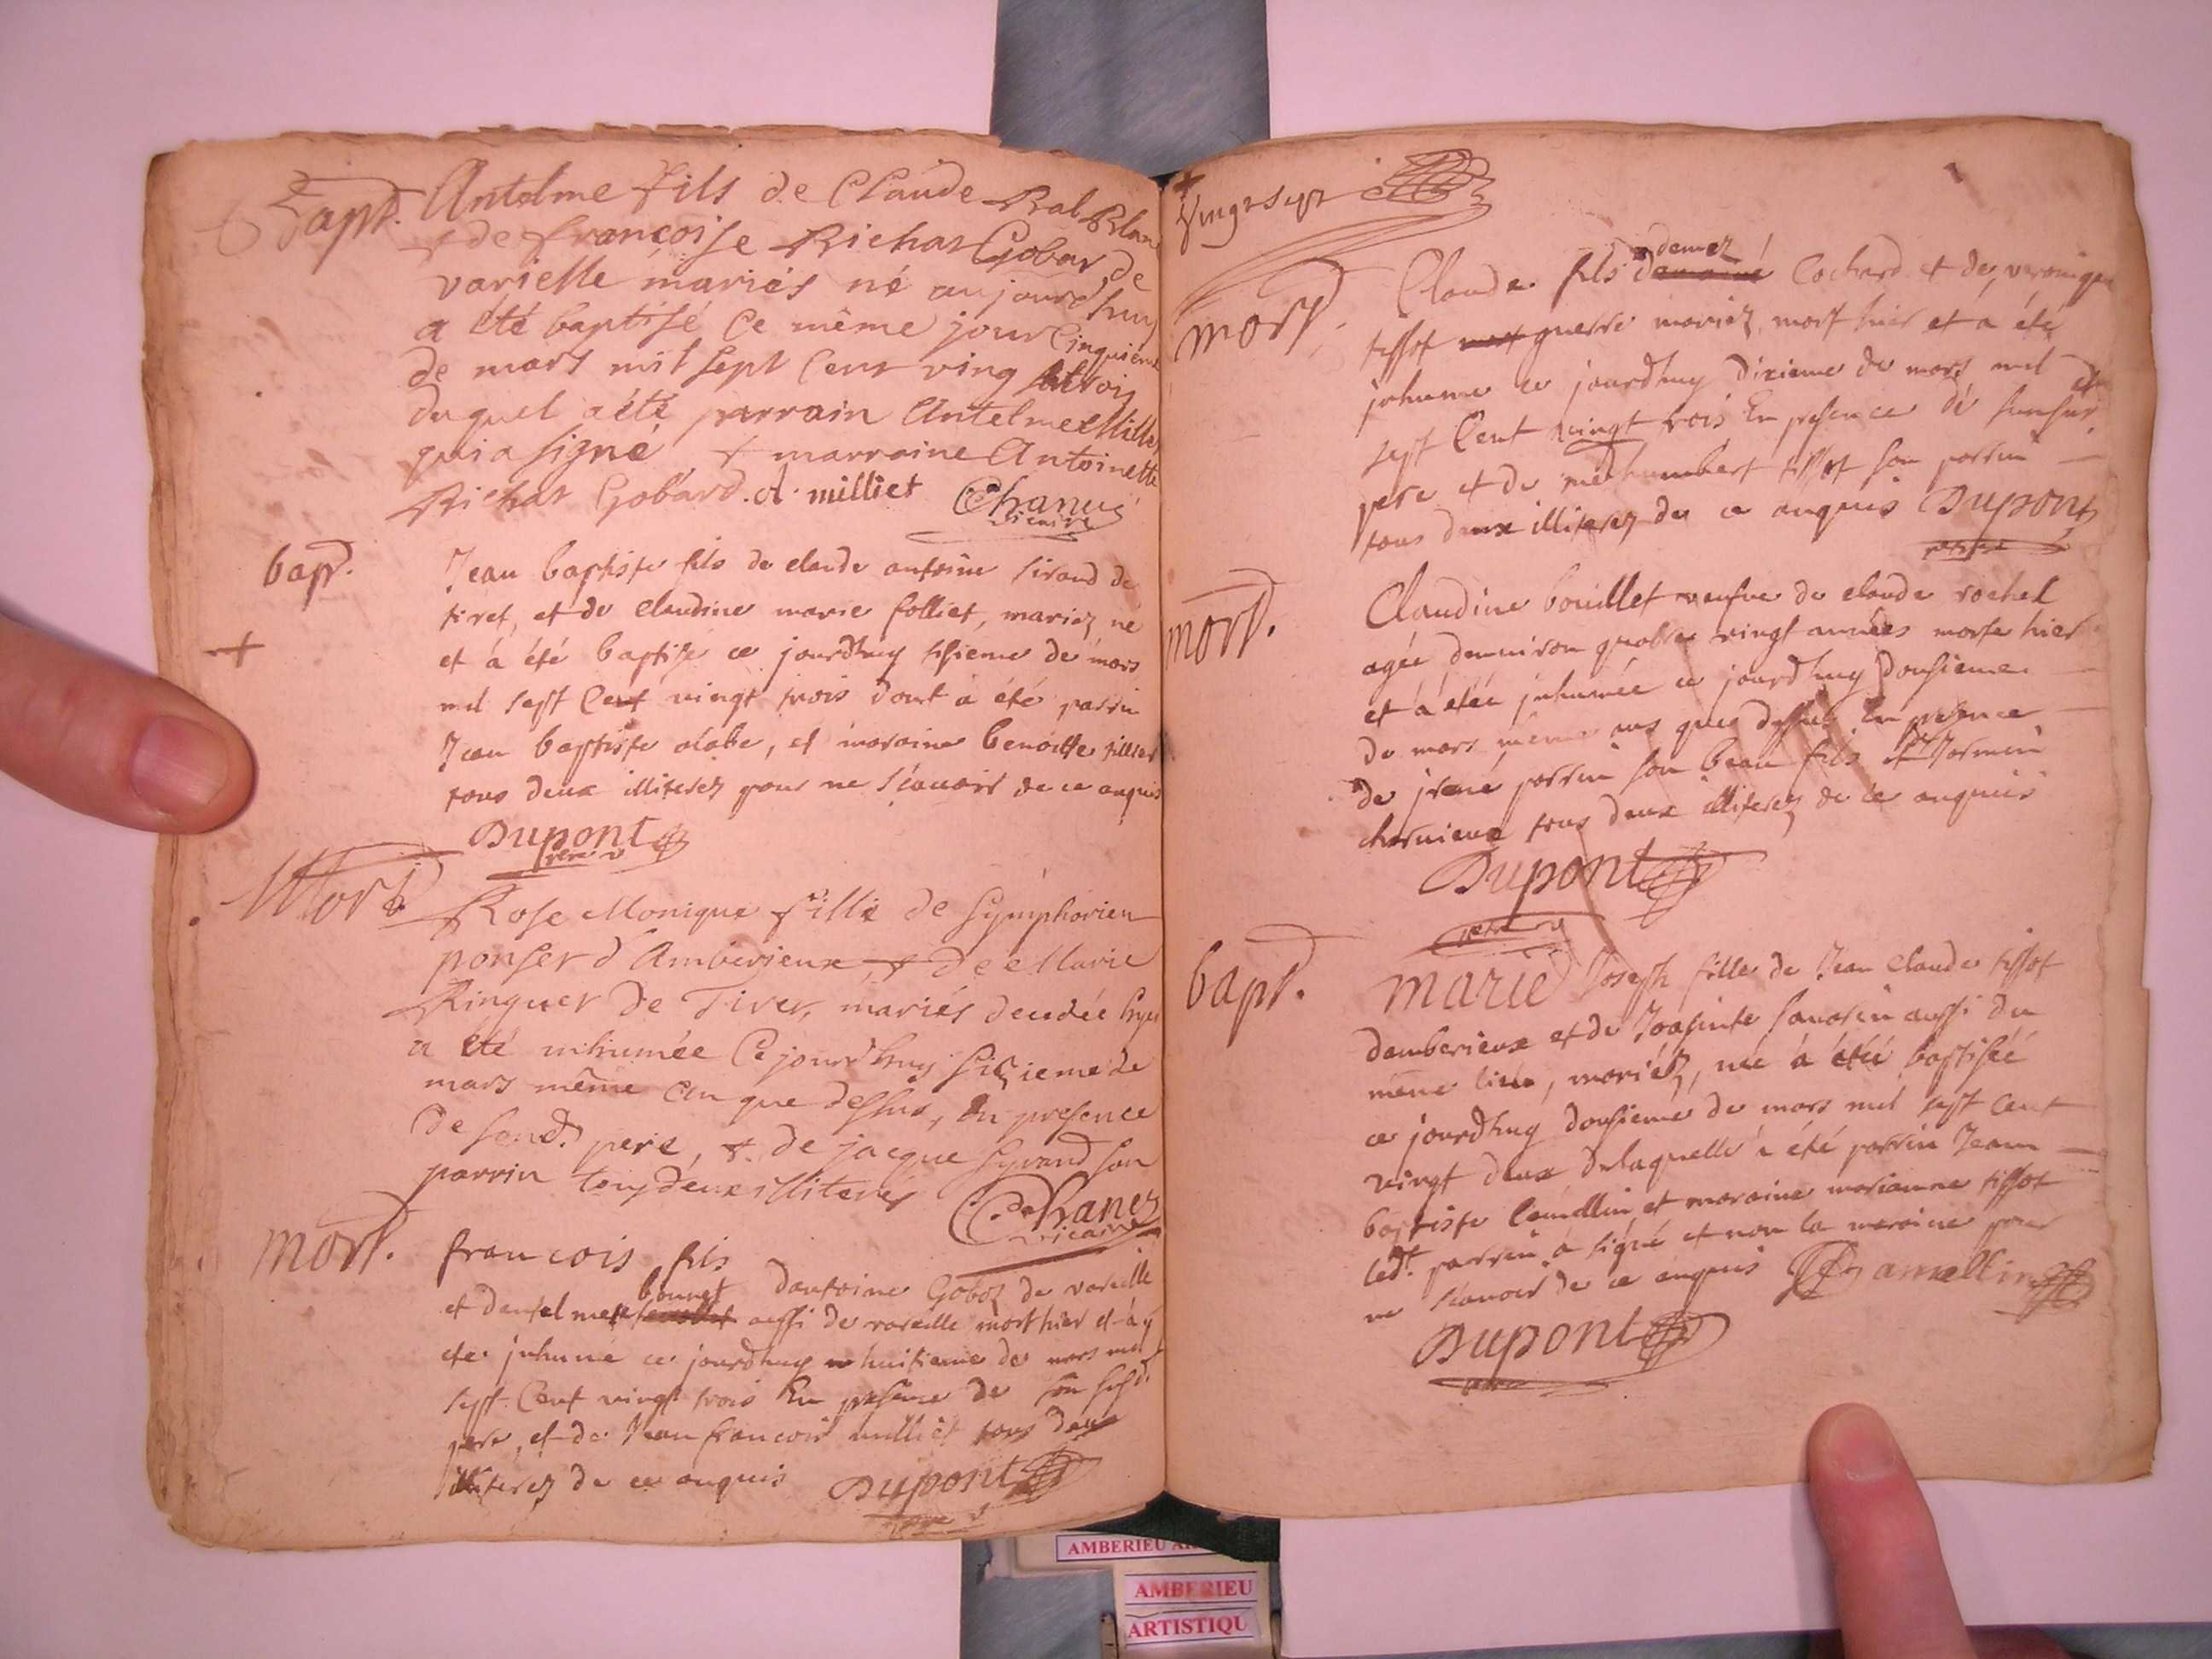 Bapt. Antelme fils de Claude Bal Blanc
& de françoise Richar Gobar de
varielle mariés né aujourd'huy
a été baptisé ce même jour Cinquieme
de mars mil sept Cent ving et trois
duquel a été parrain Antelme Millie
qui a signé & marraine Antoinette
Richar Gobard. A. milliet Chanus
vicaire
bapt. Jean baptiste fils de claude antoine sirand de
tiret, et de Claudine marie folliet, mariez né
et à été baptise ce jourdhuy sisieme de mars
mil sept Cent vingt trois dont à été parrin
Jean baptiste alabe, et maraine benoitte
tous deux illiterez pour ne sçauoir de ce enquis
Dupont
Mort Rose Monique fille de Symphorien
ponset d'Amberieux, & de Marie
Ringuet de Tiret, mariés decedée hyer
a été inhumée Cejourd'huy Sisieme de
mars même an que dessus, en presence
de sond. pere, & de jacque Syrand son
parrin tous deux illiterés Chanez
vicaire
mort. francois fils dantoine Goboz de vareille
bonnet
et dantelmete aussi de vareille mort hier et à
ete inhumé ce jourdhuy huitieme de mars mil
sept Cent vingt trois En presence de son susd.
pere, et de Jean francois milliet tous deux
illiterez de ce enquis Dupont
Vingt sept
demez
mort. Claude fils Cochard et de, veronique
tissot guerre mariez, mort hier et à été
inhume ce jourdhuy dixieme de mars mil
sept Cent vingt trois En presence de
pere et de humbert tissot son parrin
tous deux illiterez de ce enquis Dupont
mort. Claudine bouillet veufue de claude rochet
agée denuiron quattre vingt années morte hier
et à étée inhumée ce jourdhuy dousieme
de mars même ans que dessus En presence
de parrin son beau fils et
tous deux illiterez de ce enquis
Dupont
bapt. marie Joseph fille de Jean claude tissot
damberieux et de aussi du
même lieu, mariéz, née à étée baptisée
ce jourdhuy dousieme de mars mil sept cent
vingt deux delaquelle à été parrin Jean
baptiste et maraine marianne tissot
led.t parrin à signé et non la maraine pour
ne scauoir de ce enquis
Dupont
AMBERIEU
AMBERIEU
ARTISTIQU